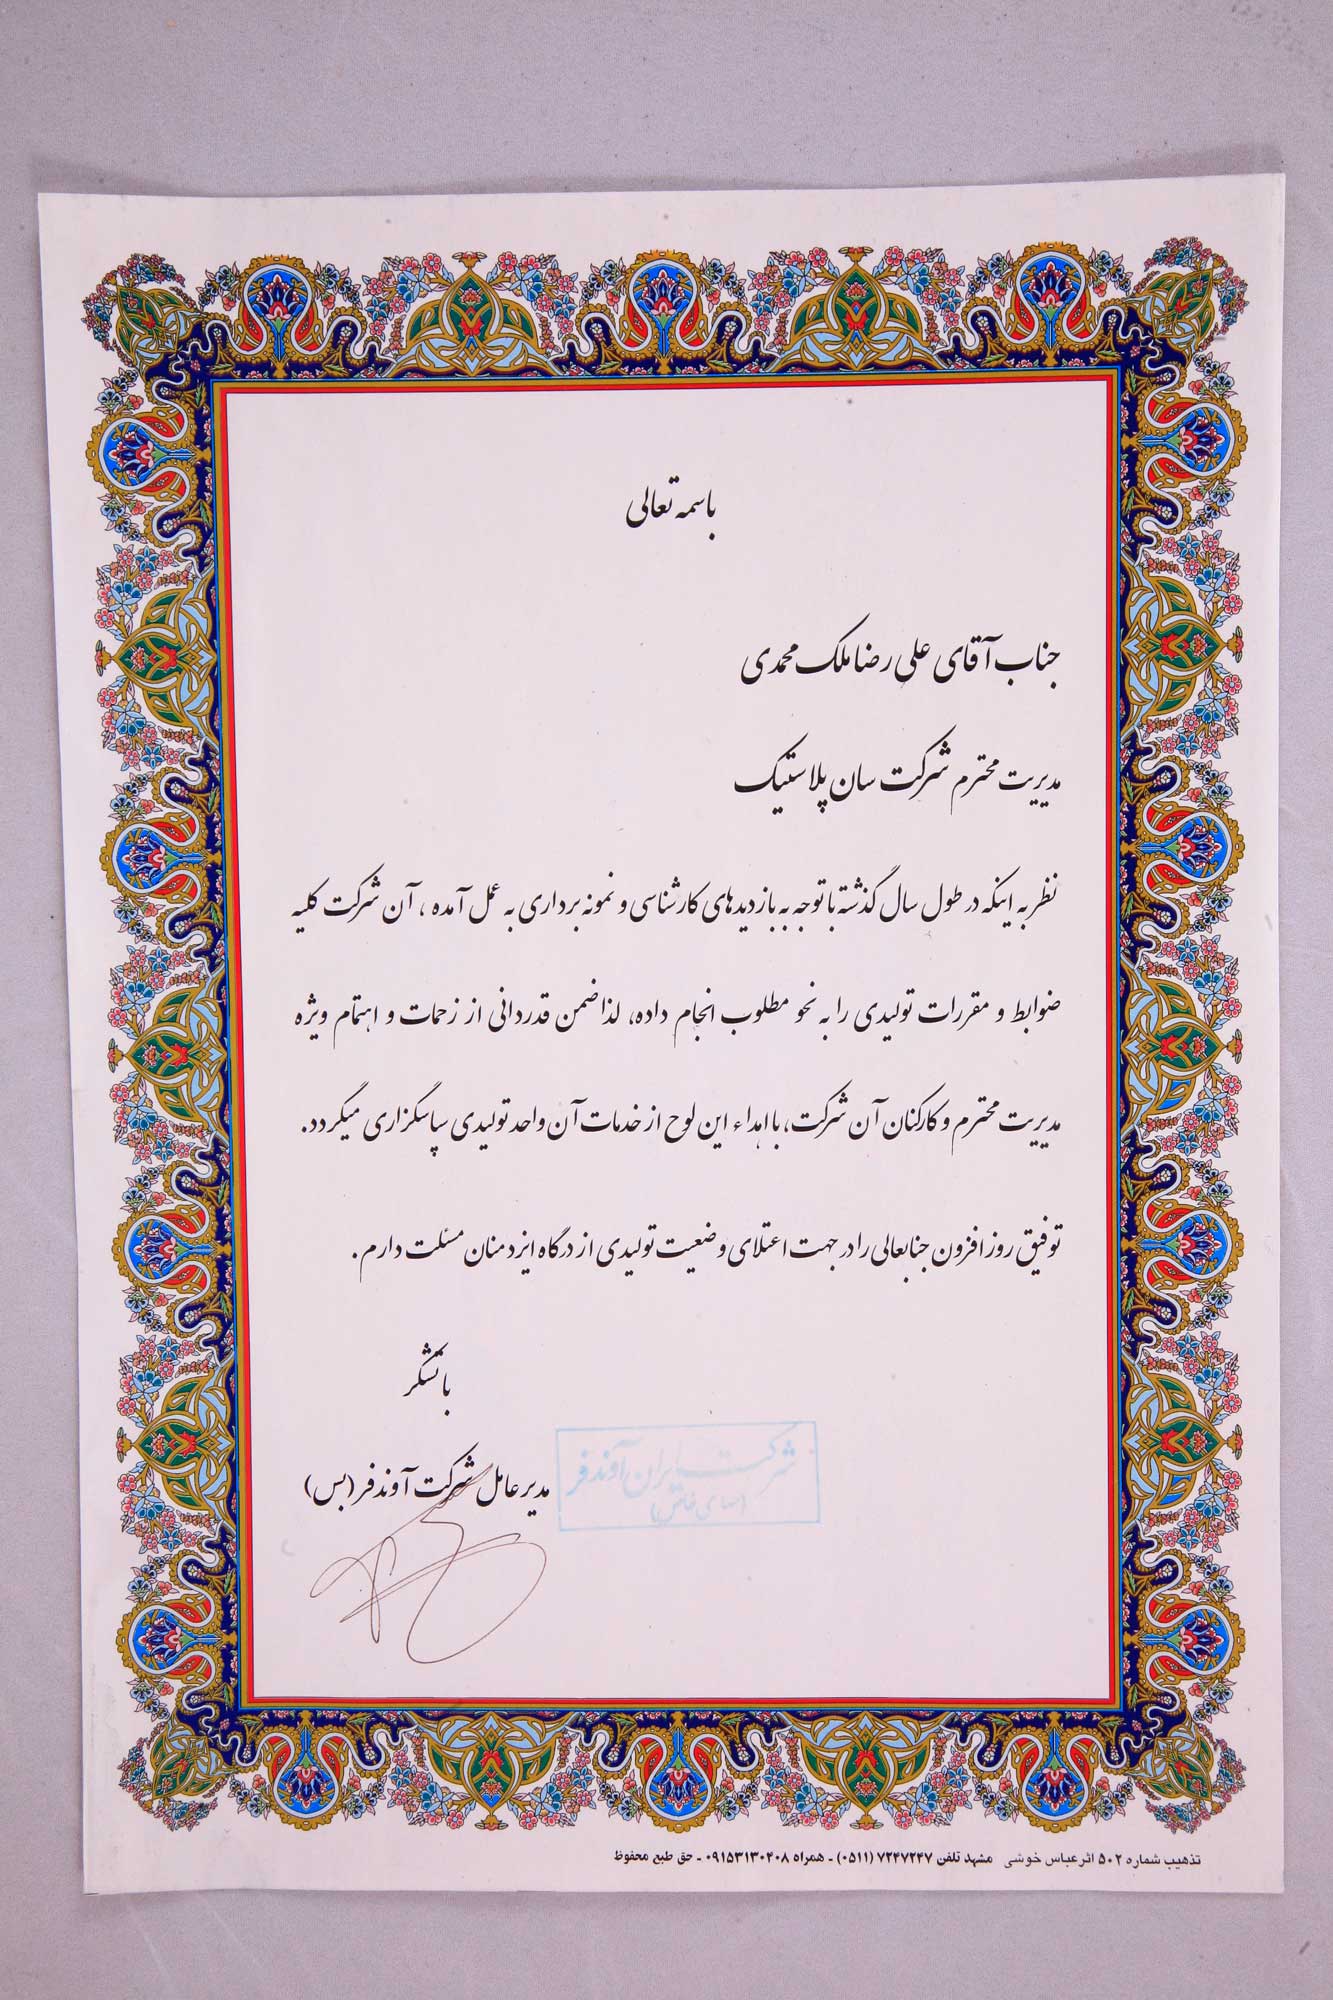 باسمه تعالی
جناب آقای علی رضا ملک محمدی
مدیریت محترم شرکت سان پلاستیک
نظر به اینکه در طول سال گذشته با توجه به بازدیدهای کارشناسی و نمونه برداری به عمل آمده ، آن شرکت کلیه
ضوابط و مقررات تولیدی را به نحو مطلوب انجام داده، لذا ضمن قدردانی از زحمات و اهتمام ویژه
مدیریت محترم و کارکنان آن شرکت، با اهداء این لوح از خدمات آن واحد تولیدی سپاسگزاری میگردد.
توفیق روز افزون جنابعالی را در جهت اعتلای وضعیت تولیدی از درگاه ایزد منان مسئلت دارم.
با تشکر
مدیر عامل شرکت آوندفر (بس)
شرکت ایران آوندفر
(سهامی خاص)
تذهیب شماره ۵۰۲ اثر عباس خوشی مشهد تلفن ۷۲۴۷۲۴۷ (۰۵۱۱) ـ همراه ۰۹۱۵۳۱۳۰۴۰۸ ـ حق طبع محفوظ